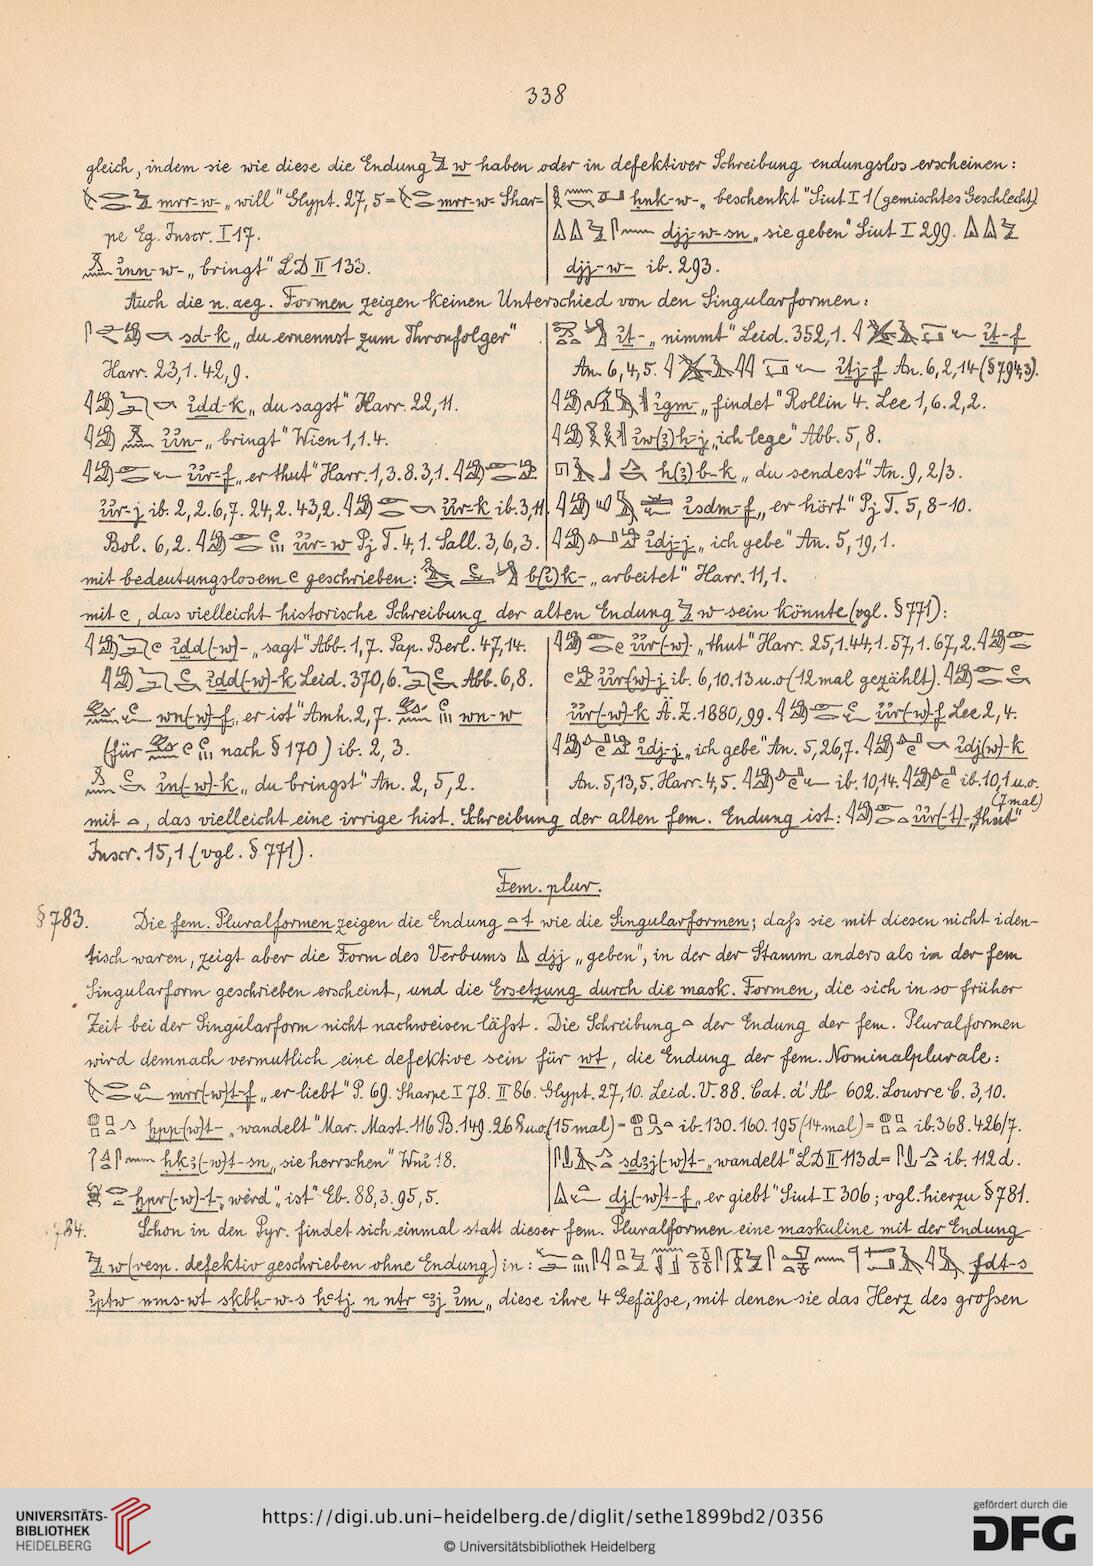 338
gleich, indem sie wie diese die Endung w haben oder in defektiver Schreibung endungslos erscheinen:
mrr-w- „will" Glypt. 27,5 = mrr-w- Shar=
pe Eg. Inscr. I 17.
inn-w- „bringt" LD II 133.
ḥnk-w- „beschenkt" Siut I 1 (gemischtes Geschlecht)
djj-w-sn „sie geben" Siut I 299.
djj-w- ib. 293.
Auch die n. aeg. Formen zeigen keinen Unterschied von den Singularformen:
sd-k „du ernennst zum Thronfolger"
Harr. 23,1. 42,9.
idd-k „du sagst" Harr. 22,11.
iin- „bringt" Wien 1,1.4.
iir-f „er thut" Harr. 1,3. 8. 3,1.
iir-j ib. 2,2. 6,7. 24,2. 43,2. iir-k ib. 3,11
Bol. 6,2. iir-w Pj T. 4,1. Sall. 3,6,3.
it- „nimmt" Leid. 352,1. it-f
An. 6,4,5. itj-f An. 6,2,14 (§ 794,3).
igm- „findet" Rollin 4. Lee 1,6. 2,2.
iw(ꜣ)ḥ-j „ich lege" Abb. 5,8.
h(ꜣ)b-k „du sendest" An. 9,2/3.
isdm-f „er hört" Pj T. 5,8-10.
idj-j „ich gebe" An. 5,19,1.
mit bedeutungslosem geschrieben: b(ꜣ)k- „arbeitet" Harr. 11,1.
mit , das vielleicht historische Schreibung der alten Endung w sein könnte (vgl. § 771):
idd(-w)- „sagt" Abb. 1,7. Pap. Berl. 47,14.
idd(-w)-k Leid. 370,6. Abb. 6,8.
wn(-w)-f „er ist" Amh. 2,7. wn-w
(für nach § 170) ib. 2,3.
in(-w)-k „du bringst" An. 2,5,2.
iir(-w)- „thut" Harr. 25,1. 44,1. 57,1. 67,2.
iir(-w)-j ib. 6,10. 13 u.o (12 mal gezählt).
iir(-w)-k Ä. Z. 1880, 99. iir(-w)-f Lee 2,4.
idj-j „ich gebe" An. 5,26,7. idj(-w)-k
An. 5,13,5. Harr. 4,5. ib. 10,14. ib. 10,1 u.o.
(7 mal)
mit , das vielleicht eine irrige hist. Schreibung der alten fem. Endung ist: iir(-t)- „thut"
Inscr. 15,1 (vgl. § 771).
Fem. plur.
§ 783. Die fem. Pluralformen zeigen die Endung t wie die Singularformen; daſs sie mit diesen nicht iden-
tisch waren, zeigt aber die Form des Verbums djj „geben", in der der Stamm anders als in der fem
Singularform geschrieben erscheint, und die Ersetzung durch die mask. Formen, die sich in so früher
Zeit bei der Singularform nicht nachweisen läſst. Die Schreibung der Endung der fem. Pluralformen
wird demnach vermutlich eine defektive sein für wt, die Endung der fem. Nominalplurale:
mrr(-w)t-f „er liebt" P. 69. Sharpe I 78. II 86. Glypt. 27,10. Leid. V. 88. Cat. d'Ab. 602. Louvre C. 3,10.
ḫpp(-w)t- „wandelt" Mar. Mast. 116 B. 149. 268 u.o. (15 mal) = ib. 130. 160. 195 (14 mal) = ib. 368. 426/7.
ḥkꜣ(-w)t-sn „sie herrschen" Wni 18.
ḫpr(-w)-t- „werd", „ist" Eb. 88,3. 95,5.
sdꜣj(-w)t- „wandelt" LD II 113 d = ib. 112 d.
dj(-w)t-f „er giebt" Siut I 306; vgl. hierzu § 781.
784. Schon in den Pyr. findet sich einmal statt dieser fem. Pluralformen eine maskuline mit der Endung
w (resp. defektiv geschrieben ohne Endung) in: fdt-s
iptw nms-wt skbḥ-w-s ḥꜥtj n nṯr ꜥꜣj im „diese ihre 4 Gefäſse, mit denen sie das Herz des groſsen
UNIVERSITÄTS-
BIBLIOTHEK
HEIDELBERG
https://digi.ub.uni-heidelberg.de/diglit/sethe1899bd2/0356
© Universitätsbibliothek Heidelberg
gefördert durch die
DFG